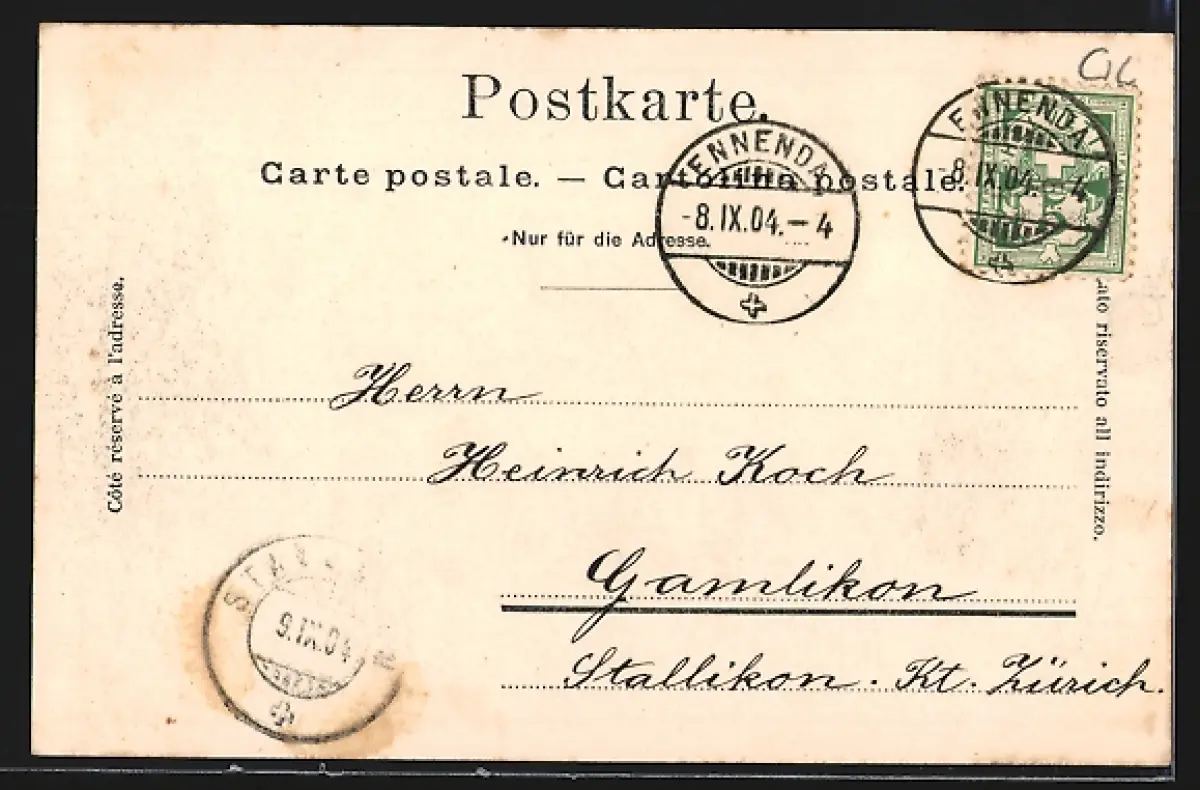 GL
Postkarte.
Carte postale. — Cartolina postale.
Nur für die Adresse.
ENNENDA
-8.IX.04.-4
ENNENDA
8.IX.04.-4
Côté réservé à l'adresse.
riservato all indirizzo.
Herrn
Heinrich Koch
Gamlikon
Stallikon. Kt. Zürich.
9.IX.04